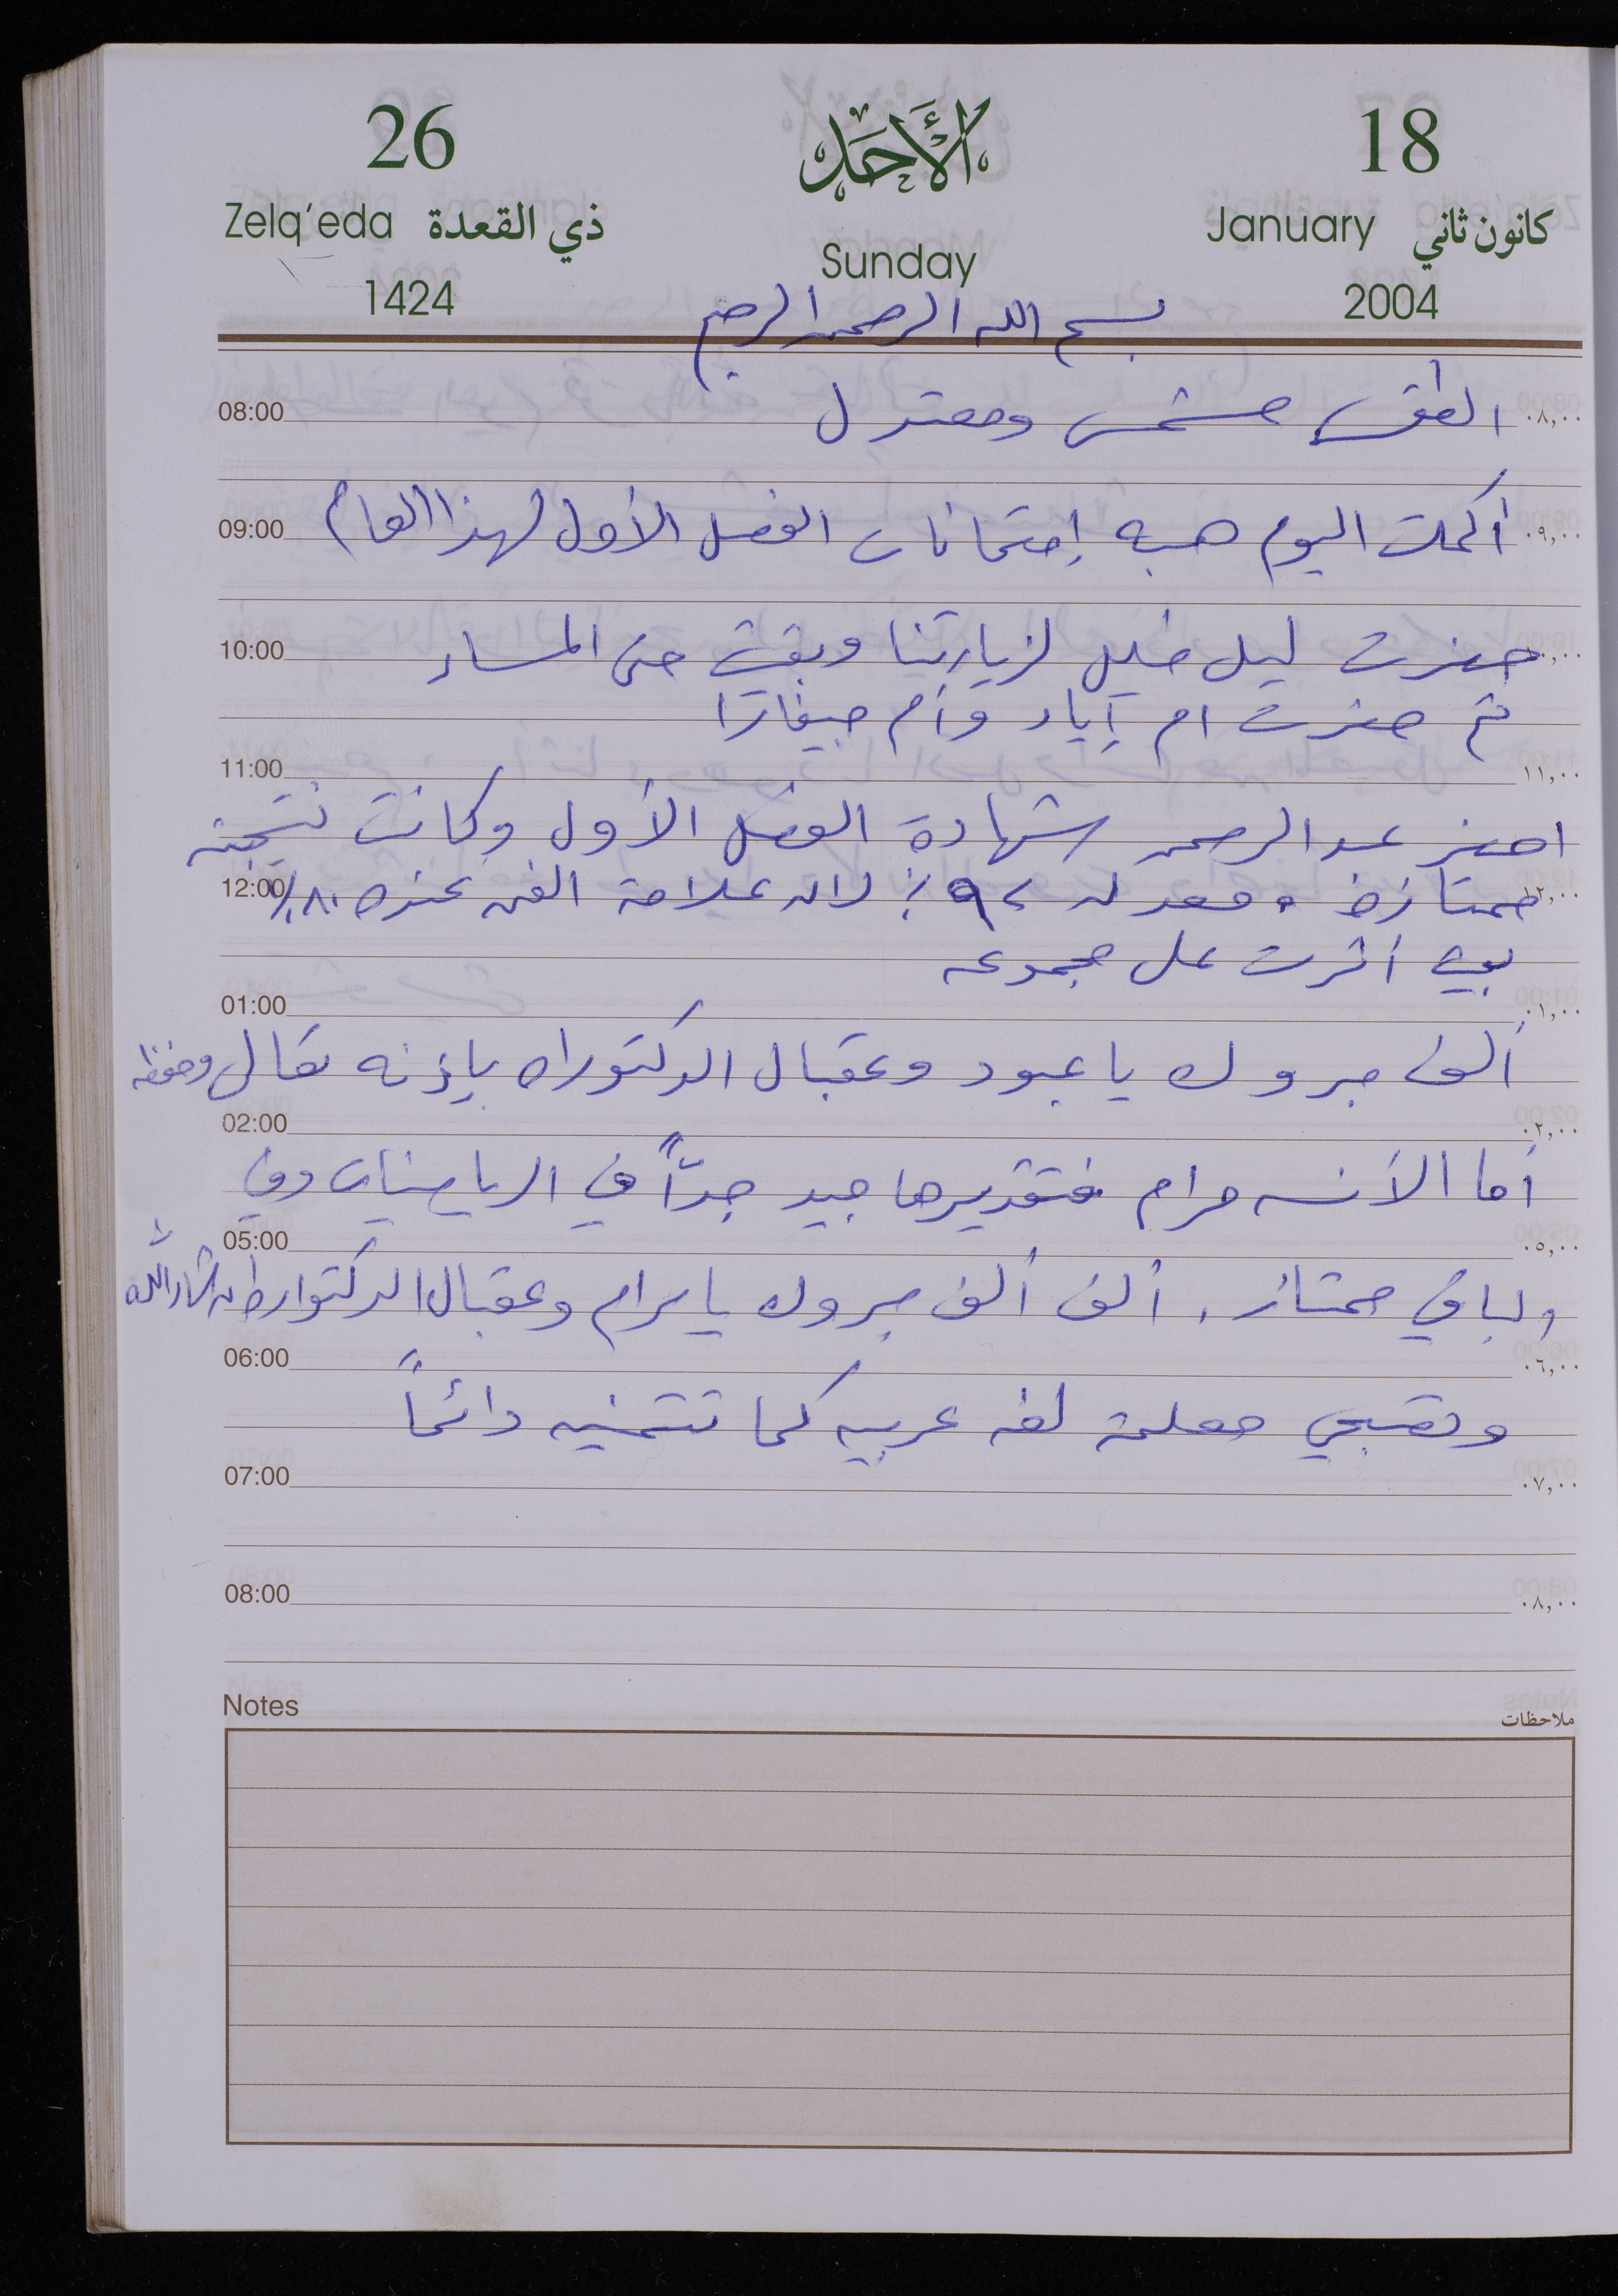 26 الأَحَد 18
Zelq'eda ذي القعدة Sunday January كانون ثاني
1424 2004
بسم الله الرحمن الرحيم
08:00 الطقس مشمس ومعتدل ٠٨,٠٠
09:00 أكملت اليوم هبه إمتحانات الفصل الأول لهذا العام ٠٩,٠٠
10:00 حضرت ليلى خليل لزيارتنا وبقيت حتى المساء
ثم حضرت ام إياد وأم جيفارا
11:00 ١١,٠٠
احضر عبد الرحمن شهادة الفصل الأول وكانت نتيجته
12:00 ممتاز معدله ٩٢٪ لان علامة الفن عنده ٨٠٪ ١٢,٠٠
أثرت على مجموعه
01:00 ٠١,٠٠
ألف مبروك يا عبود وعقبال الدكتوراه بإذنه تعالى وحفظه
02:00 ٠٢,٠٠
أما الأنسه مرام فتقديرها جيد جدّاً في الرياضيات وفي
05:00 ٠٥,٠٠
ولباقي ممتاز. ألف ألف مبروك يا مرام وعقبال الدكتوراه ان شاء الله
06:00 ٠٦,٠٠
وتصبحي معلمة لغه عربيه كما تتمنيه دائماً
07:00 ٠٧,٠٠
08:00 ٠٨,٠٠
Notes ملاحظات